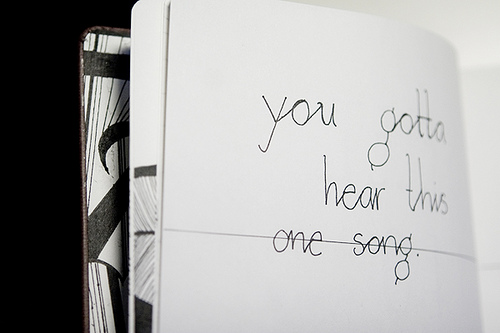 you gotta
hear this
one song.